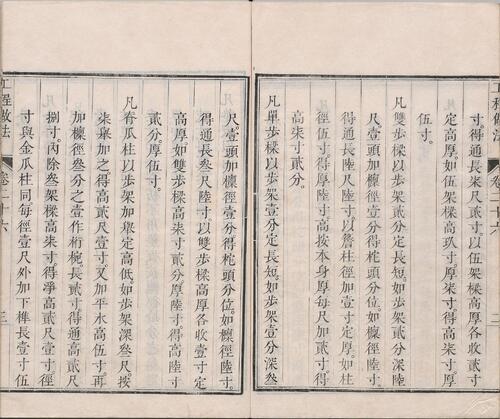 工程做法
卷二十六
二
寸得通長柒尺貳寸以伍架樑高厚各收貳寸
定高厚如伍架樑高玖寸厚柒寸得高柒寸厚
伍寸
凡雙步樑以步架貳分定長短如步架貳分深陸
尺壹頭加檁徑壹分得柁頭分位如檁徑陸寸
得通長陸尺陸寸以簷柱徑加壹寸定厚如柱
徑伍寸得厚陸寸高按本身厚每尺加貳寸得
高柒寸貳分
凡單步樑以步架壹分定長短如步架壹分深叁
尺壹頭加檁徑壹分得柁頭分位如檁徑陸寸
得通長叁尺陸寸以雙步樑高厚各收壹寸定
高厚如雙步樑高柒寸貳分厚陸寸得高陸寸
貳分厚伍寸
凡脊瓜柱以步架加舉定高低如步架深叁尺按
柒舉加之得高貳尺壹寸又加平水高伍寸再
加檁徑叁分之壹作桁椀長貳寸得通高貳尺
捌寸內除叁架樑高柒寸得淨高貳尺壹寸徑
寸與金瓜柱同每徑壹尺外加下榫長壹寸伍
工程做法
卷二十六
三